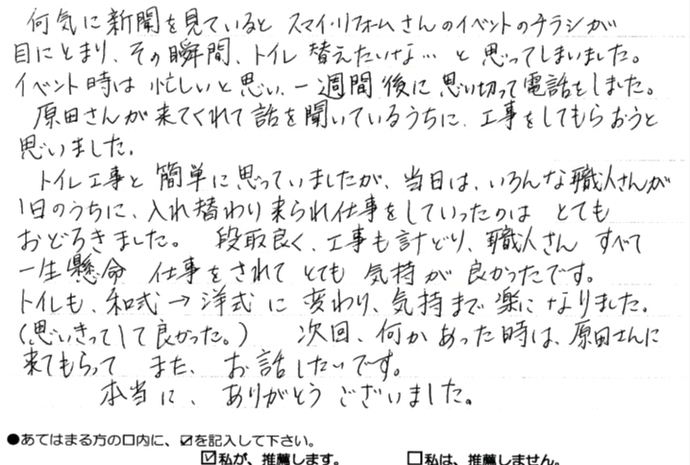 何気に新聞を見ているとスマイ・リフォームさんのイベントのチラシが
目にとまり、その瞬間、トイレ替えたいな…と思ってしまいました。
イベント時は忙しいと思い、一週間後に思い切って電話をしました。
原田さんが来てくれて話を聞いているうちに、工事をしてもらおうと
思いました。
トイレ工事と簡単に思っていましたが、当日は、いろんな職人さんが
1日のうちに、入れ替わり来られ仕事をしていったのは とても
おどろきました。 段取良く、工事も計どり、職人さん すべて
一生懸命 仕事をされて とても 気持が 良かったです。
トイレも、和式→洋式に 変わり、気持まで楽に なりました。
(思いきってして良かった。) 次回、何か あった時は、原田さんに
来てもらって また、お話したいです。
本当に、ありがとう ございました。
●あてはまる方の口内に、☑を記入して下さい。
☑私が、推薦します。 □私は、推薦しません。